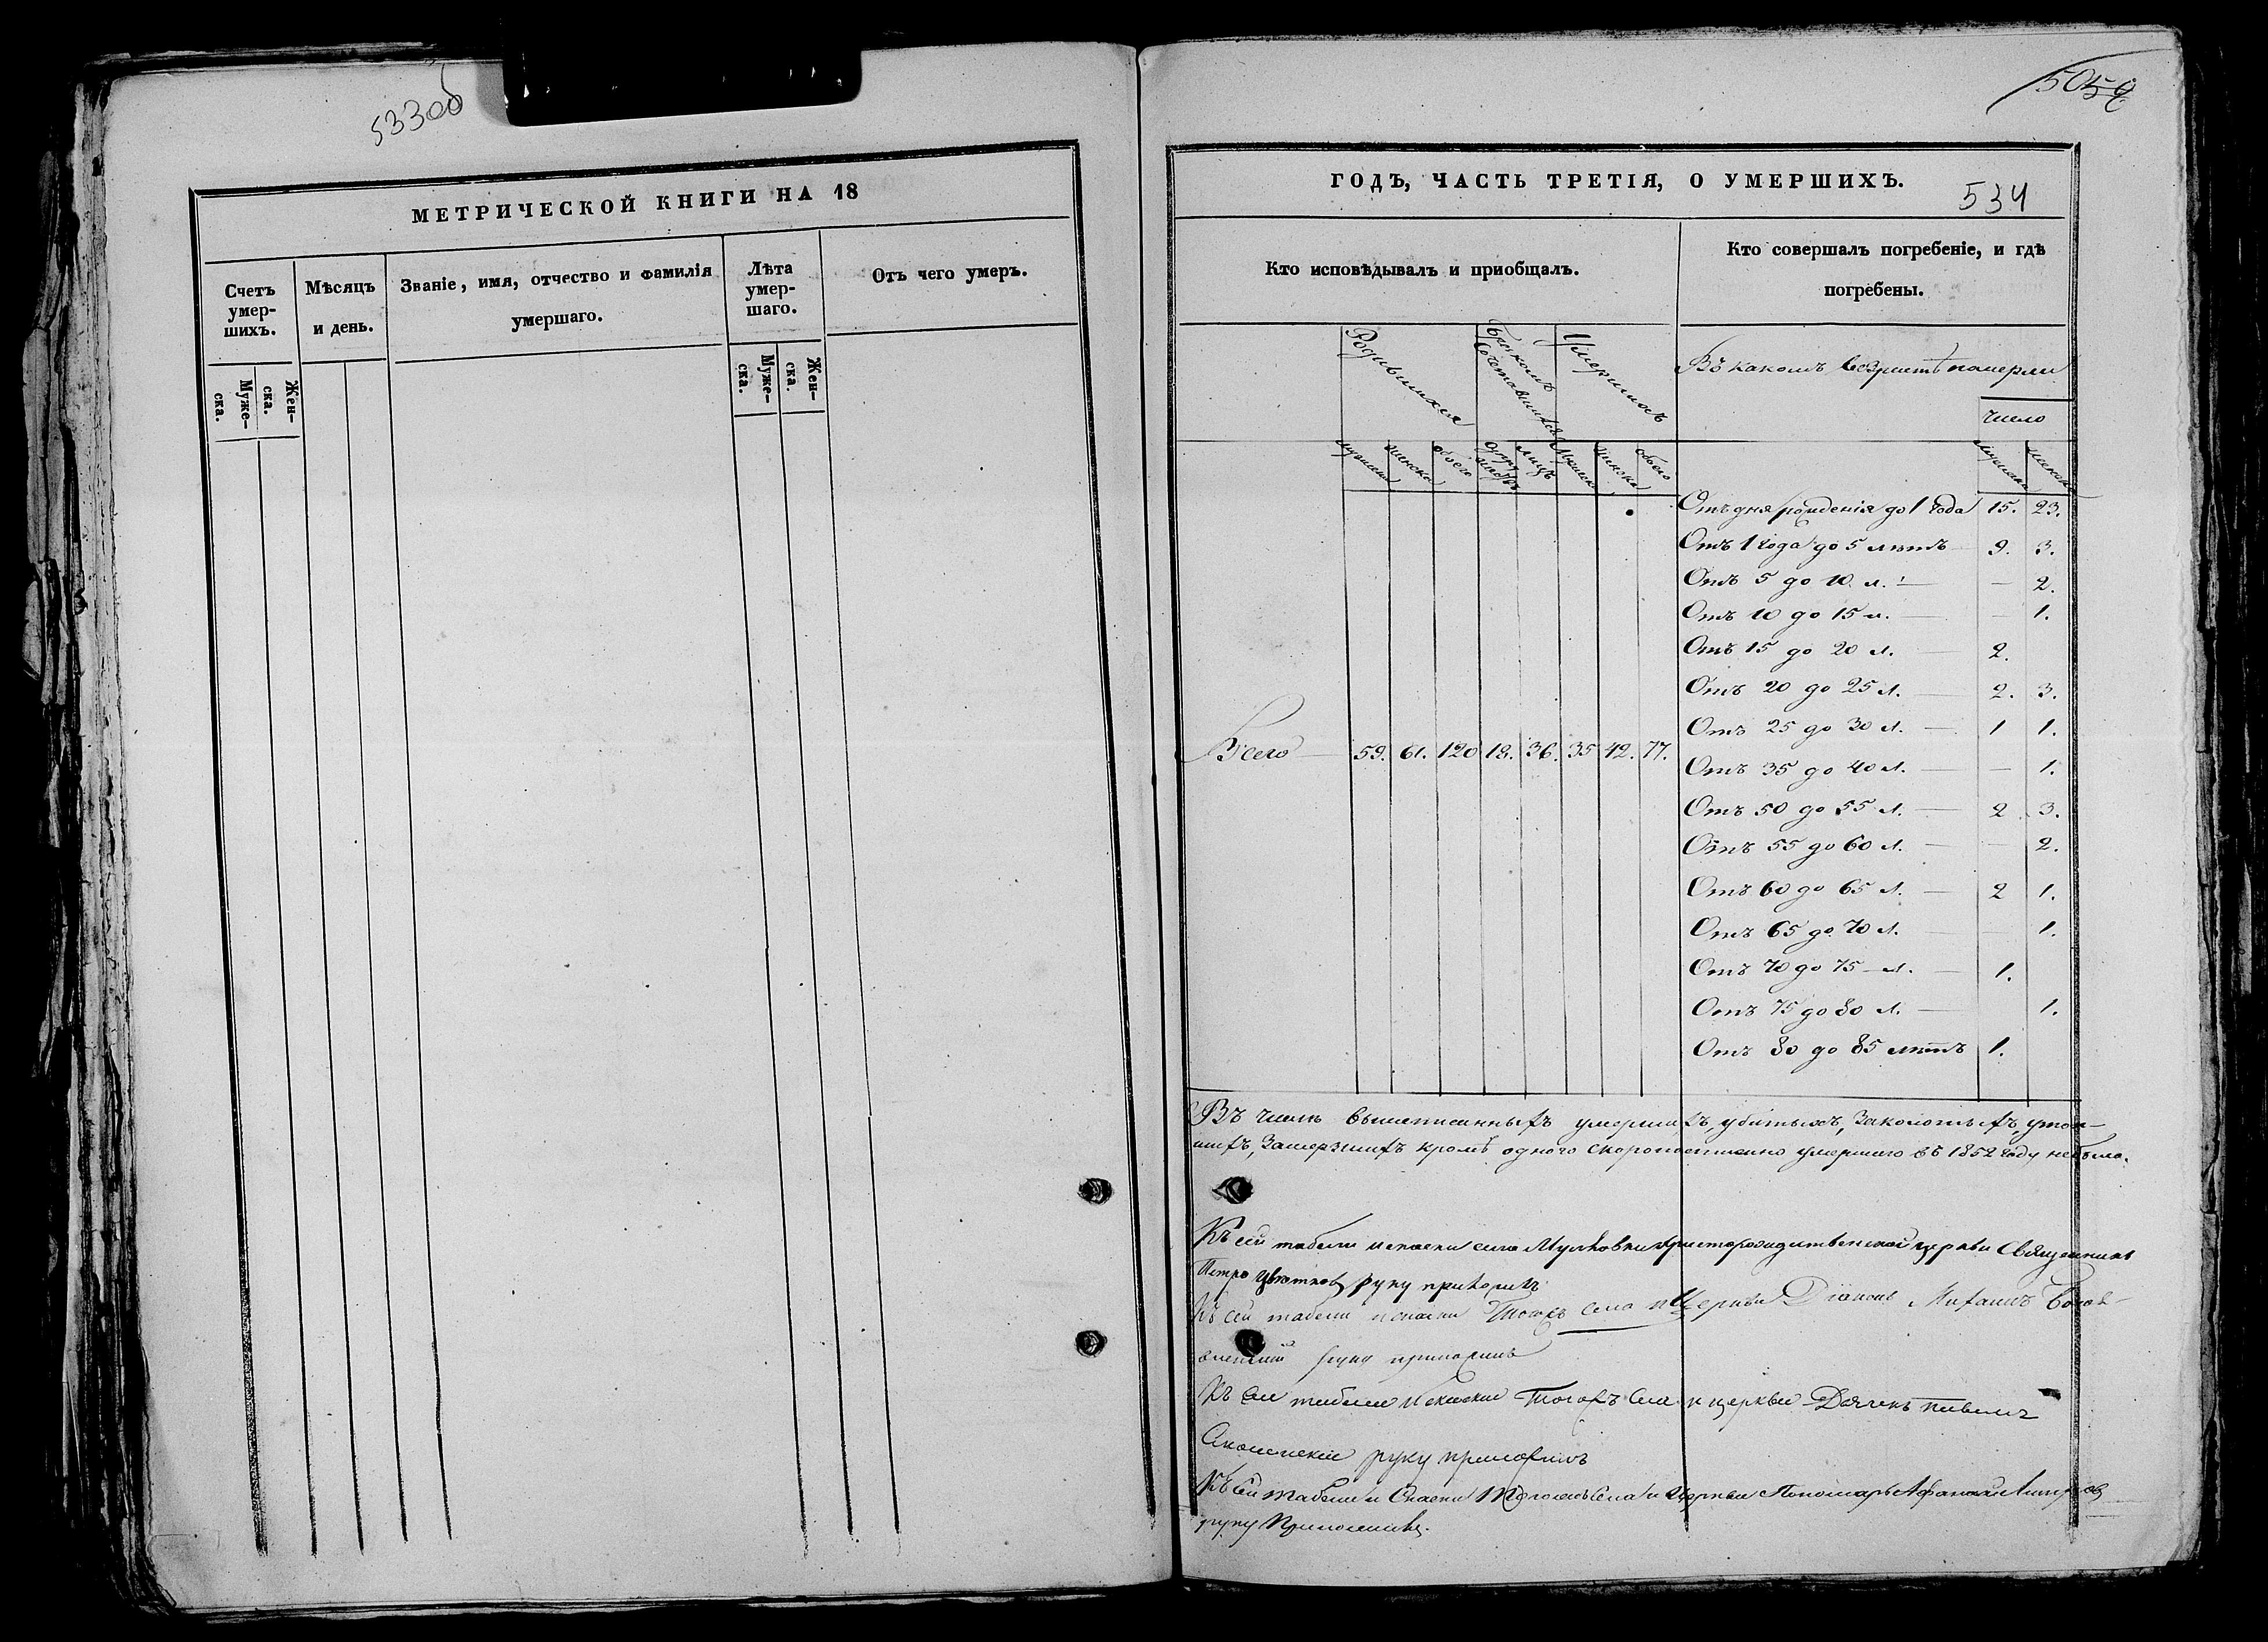 533об
МЕТРИЧЕСКОЙ КНИГИ НА 18
Счетъ умер-шихъ.
Мѣсяцъ и день.
Званіе, имя, отчество и фамилія умершаго.
Лѣта умер-шаго.
Отъ чего умеръ.
Муже-ска.
Жен-ска.
Муже-ска.
Жен-ска.
505
ГОДЪ, ЧАСТЬ ТРЕТІЯ, О УМЕРШИХЪ.
534
Кто исповѣдывалъ и приобщалъ.
Кто совершалъ погребеніе, и гдѣ
погребены.
Родившихся
Бракомъ сочетавшихся
Умершихъ
Въ какомъ возрастѣ померли
число
Отъ дня рожденія до 1 года 15. 23.
Отъ 1 года до 5 лѣтъ 9. 3.
Отъ 5 до 10 л. — 2.
Отъ 10 до 15 л. — 1.
Отъ 15 до 20 л. — 2.
Отъ 20 до 25 л. — 2. 3.
Отъ 25 до 30 л. — 1 1.
Всего — 59. 61. 120 18. 36. 35 42. 77.
Отъ 35 до 40 л. — — 1.
Отъ 50 до 55 л. — 2 3.
Отъ 55 до 60 л. — 2.
Отъ 60 до 65 л. — 2 1.
Отъ 65 до 70 л. 1.
Отъ 70 до 75 л. — 1.
Отъ 75 до 80 л. — 1.
Отъ 80 до 85 лѣтъ 1.
Въ числѣ вышеписанныхъ умершихъ, убитыхъ, заколотыхъ, утоп-
шихъ, замерзшихъ кромѣ одного скоропостижно умершаго въ 1852 году небыло.
Къ сей табели и скаски села христорождественской церкви Священникъ
Петръ Цвѣтковъ руку приложилъ
Къ сей табели и скаски тогожъ села и Церкви Діаконъ Михаилъ
руку приложилъ
Къ сей табели и скаски тогожъ села и церкви Дячекъ
руку приложилъ
Къ сей табели и скаски тогожъ села и Церкви Пономарь
руку приложилъ.